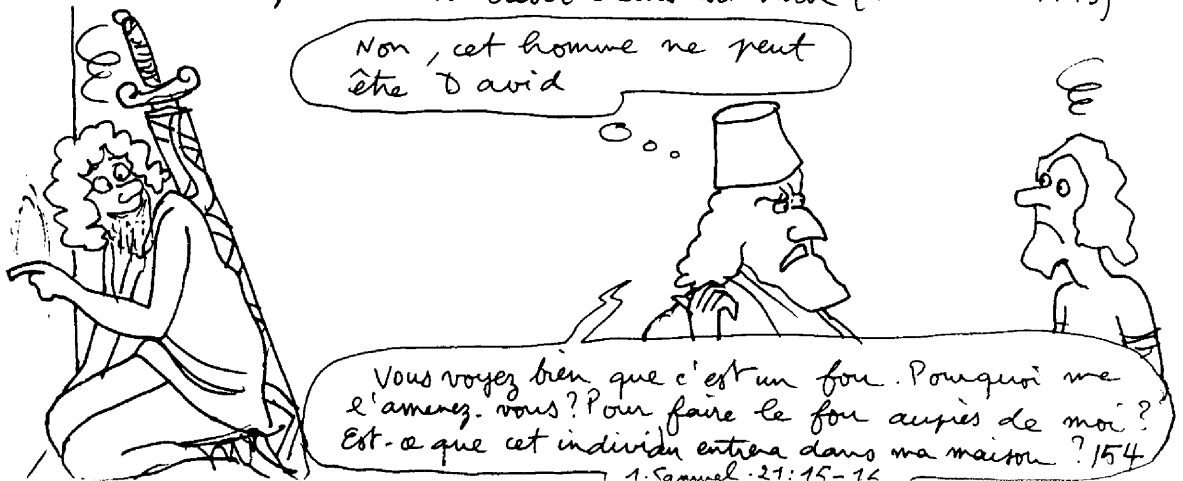 Non, cet homme ne peut
être David
Vous voyez bien que c'est un fou. Pourquoi me
l'amenez-vous? Pour faire le fou auprès de moi?
Est-ce que cet individu entrera dans ma maison? 154
1. Samuel. 21:15-16